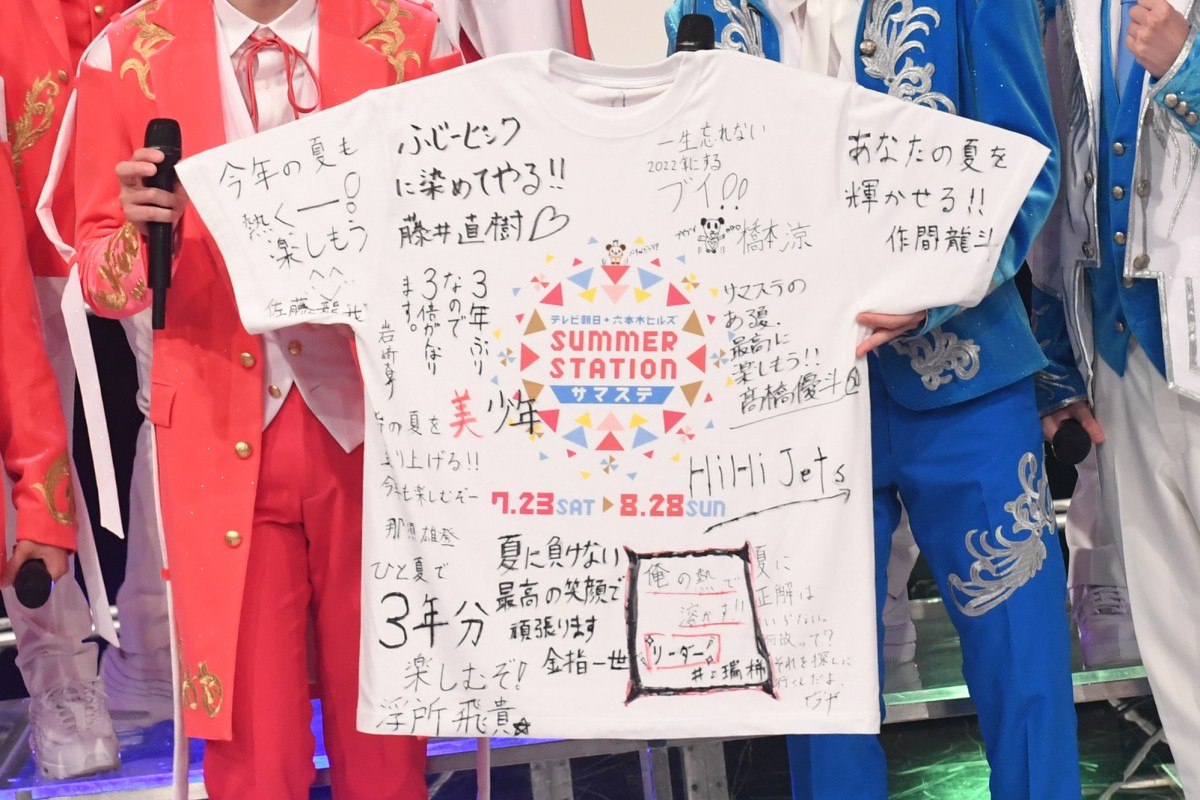 今年の夏も
熱くー!!
楽しもう
佐藤龍我
ふじーピンク
に染めてやる!!
藤井直樹♡
一生忘れない
2022年にする
ブイ!!
橋本涼
あなたの夏を
輝かせる!!
作間龍斗
3年ぶり
なので
3倍がんばり
ます。
岩﨑大昇
テレビ朝日・六本木ヒルズ
SUMMER
STATION
サマステ
サマステの
ある夏、
最高に
楽しもう!!
髙橋優斗
美 少年
の夏を
盛り上げる!!
今年も楽しむぞー
那須雄登
7.23SAT▶8.28SUN
HiHi Jets
ひと夏で
3年分
楽しむぞ!
浮所飛貴☆
夏に負けない
最高の笑顔で
頑張ります
金指一世
俺の熱で
溶かす!!
リーダー
井上瑞稀
夏に
正解は
いらない。
何故って?
それを探しに
行くんだよ。
ガサ